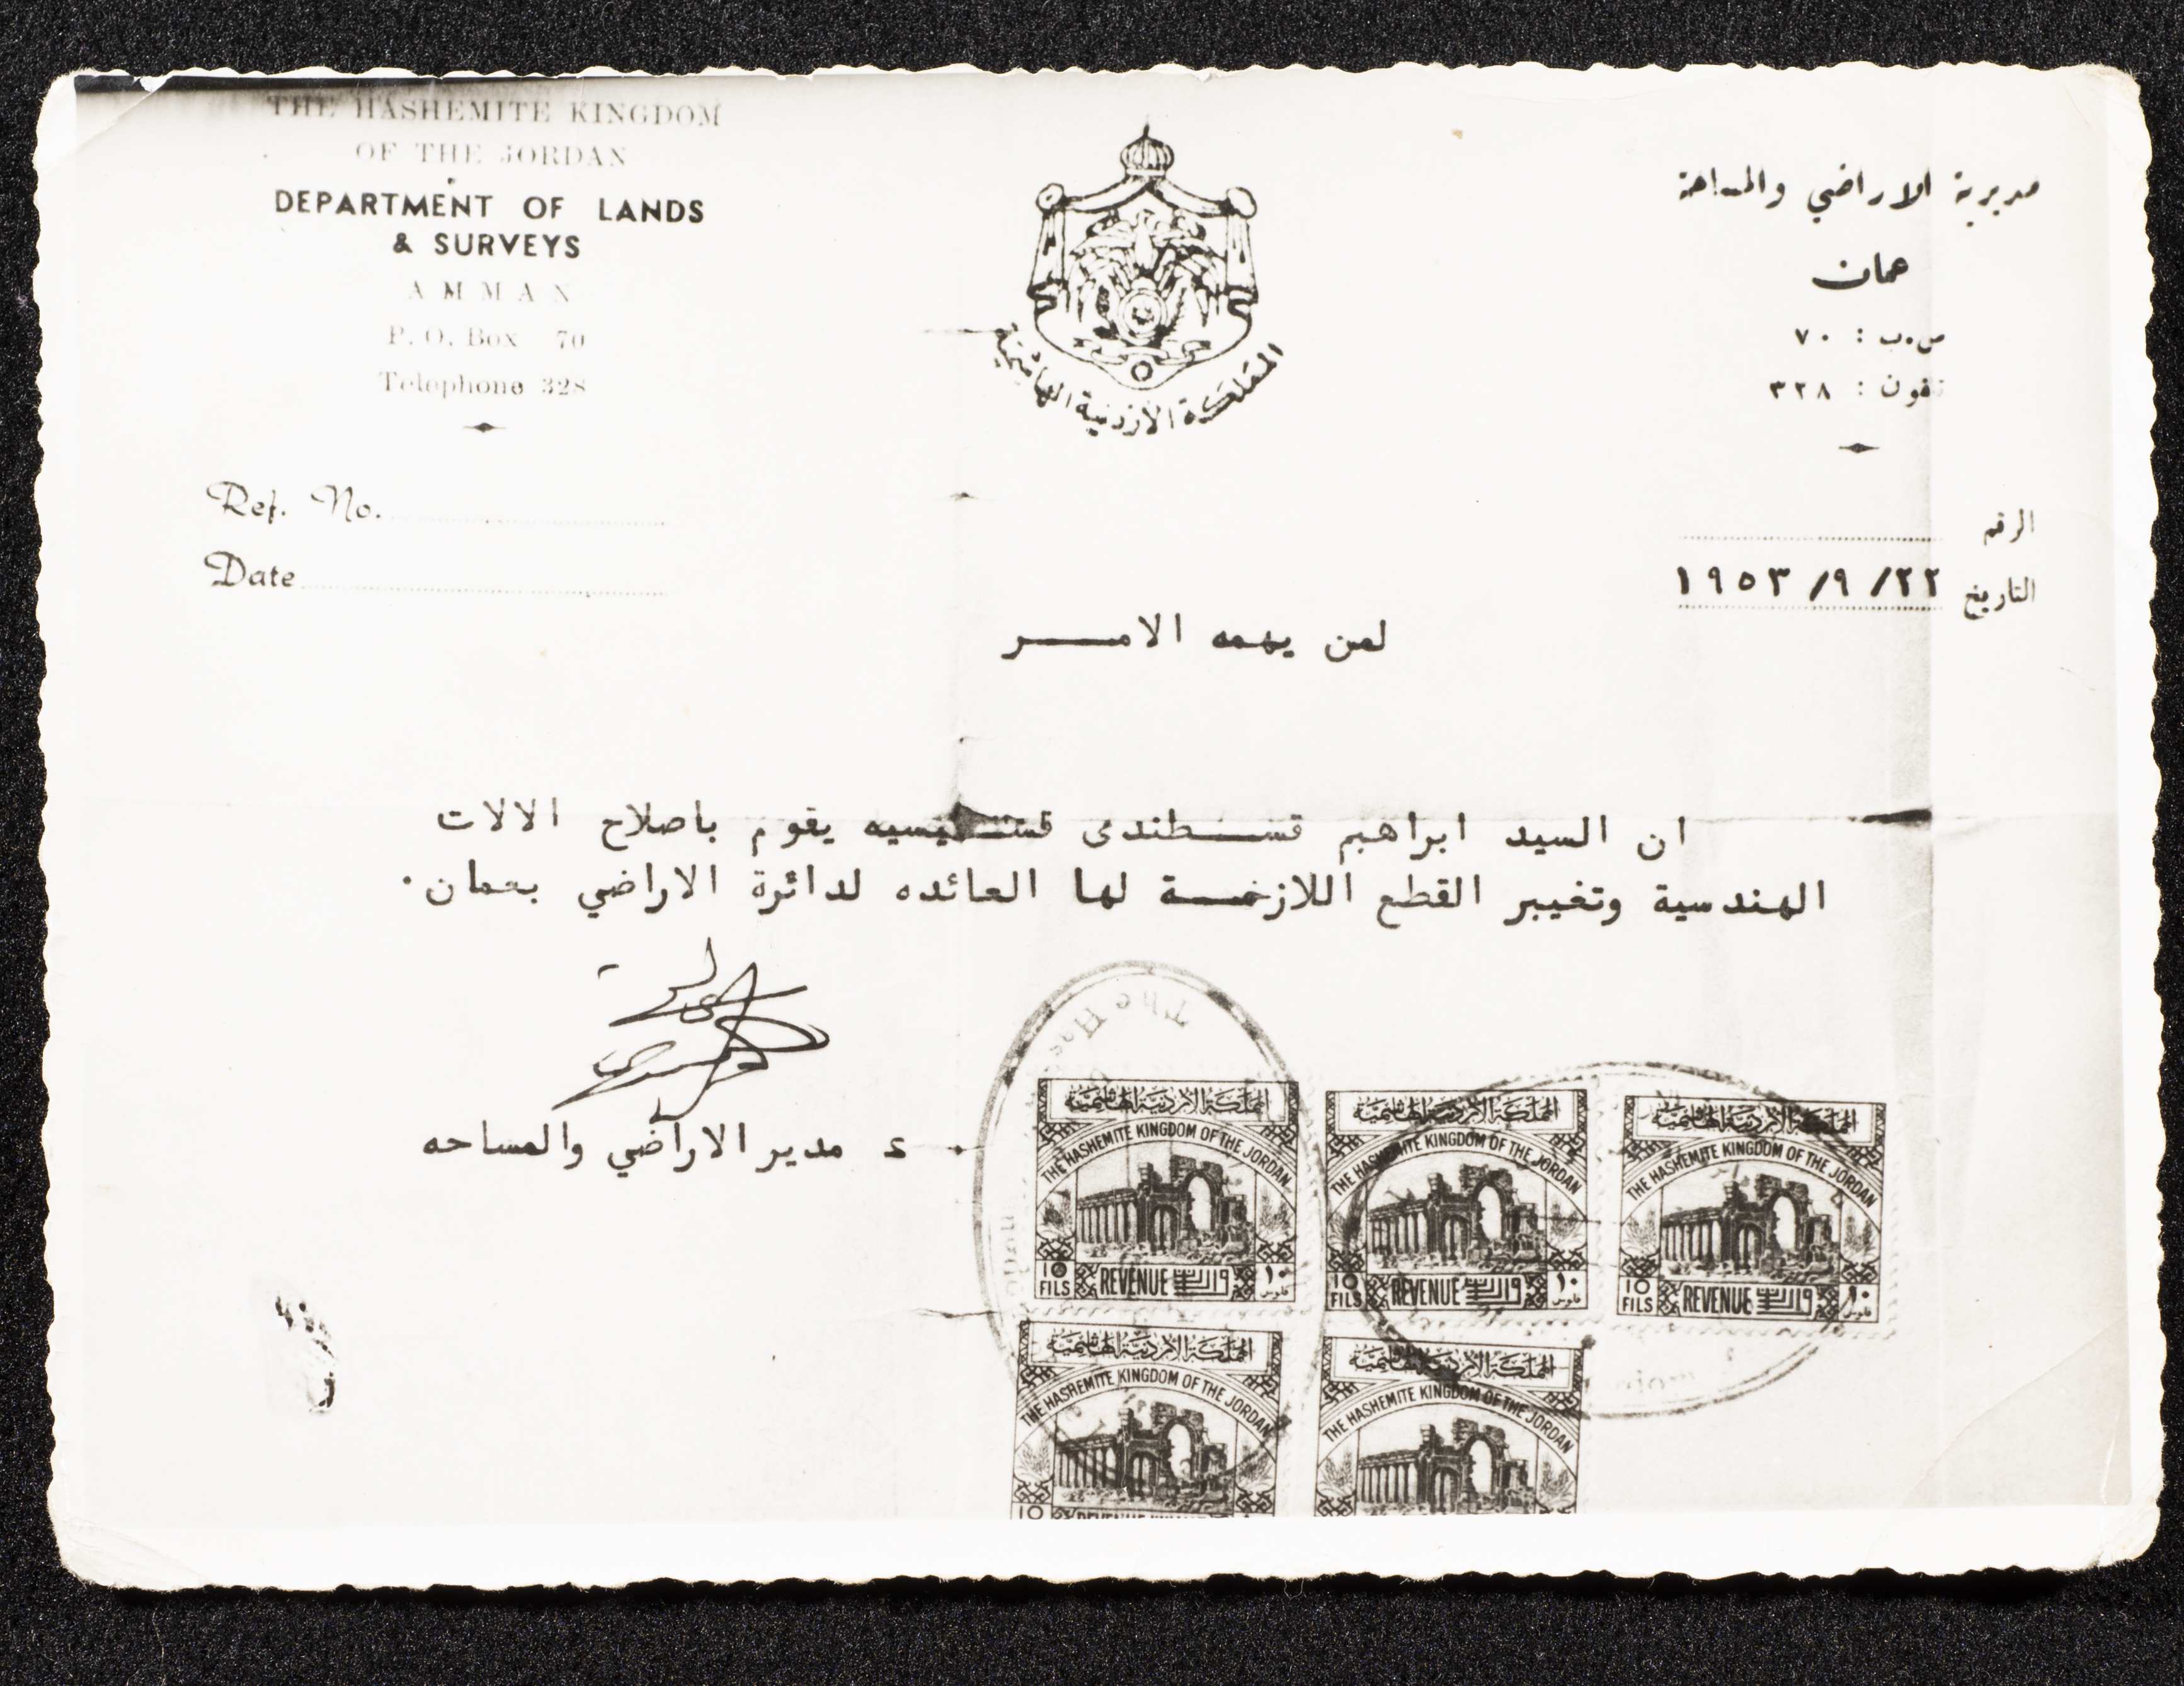 THE HASHEMITE KINGDOM
OF THE JORDAN
DEPARTMENT OF LANDS
& SURVEYS
AMMAN
P. O. Box 70
Telephone 328
Ref. No.
Date
المملكة الأردنية الهاشمية
مديرية الاراضي والمساحة
عمان
ص.ب : ٧٠
تلفون : ٣٢٨
الرقم
التاريخ ٢٢/ ٩/ ١٩٥٣
لمن يهمه الامـــر
ان السيد ابراهيم قسـطندى يقوم باصلاح الالات
الهندسية وتغيير القطع اللازمـة لها العائده لدائرة الاراضي بعمان.
ع مدير الاراضي والمساحه
The Has
المملكة الاردنية الهاشمية
THE HASHEMITE KINGDOM OF THE JORDAN
10 FILS REVENUE واردات ١٠ فلوس
المملكة الاردنية الهاشمية
THE HASHEMITE KINGDOM OF THE JORDAN
10 FILS REVENUE واردات ١٠ فلوس
المملكة الاردنية الهاشمية
THE HASHEMITE KINGDOM OF THE JORDAN
10 FILS REVENUE واردات ١٠ فلوس
المملكة الاردنية الهاشمية
THE HASHEMITE KINGDOM OF THE JORDAN
10 REVENUE
المملكة الاردنية الهاشمية
THE HASHEMITE KINGDOM OF THE JORDAN